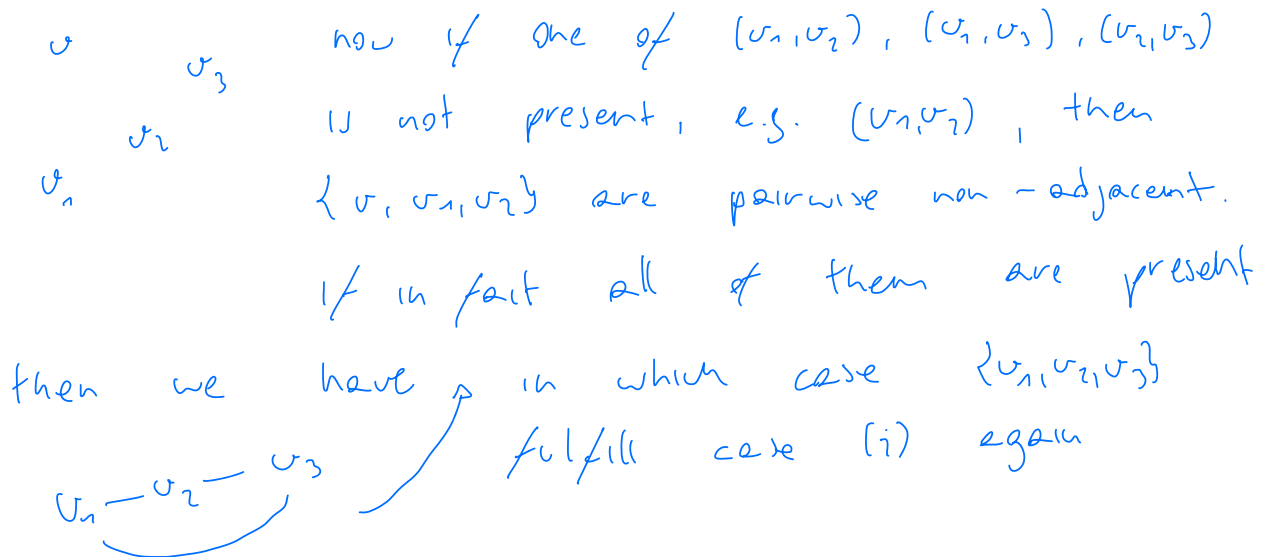 v now if one of (v₁,v₂), (v₁,v₃), (v₂,v₃)
v₃
v₂ is not present, e.g. (v₁,v₂), then
v₁ {v, v₁, v₂} are pairwise non-adjacent.
if in fact all of them are present
then we have in which case {v₁,v₂,v₃}
fulfill case (i) again
v₁ — v₂ — v₃